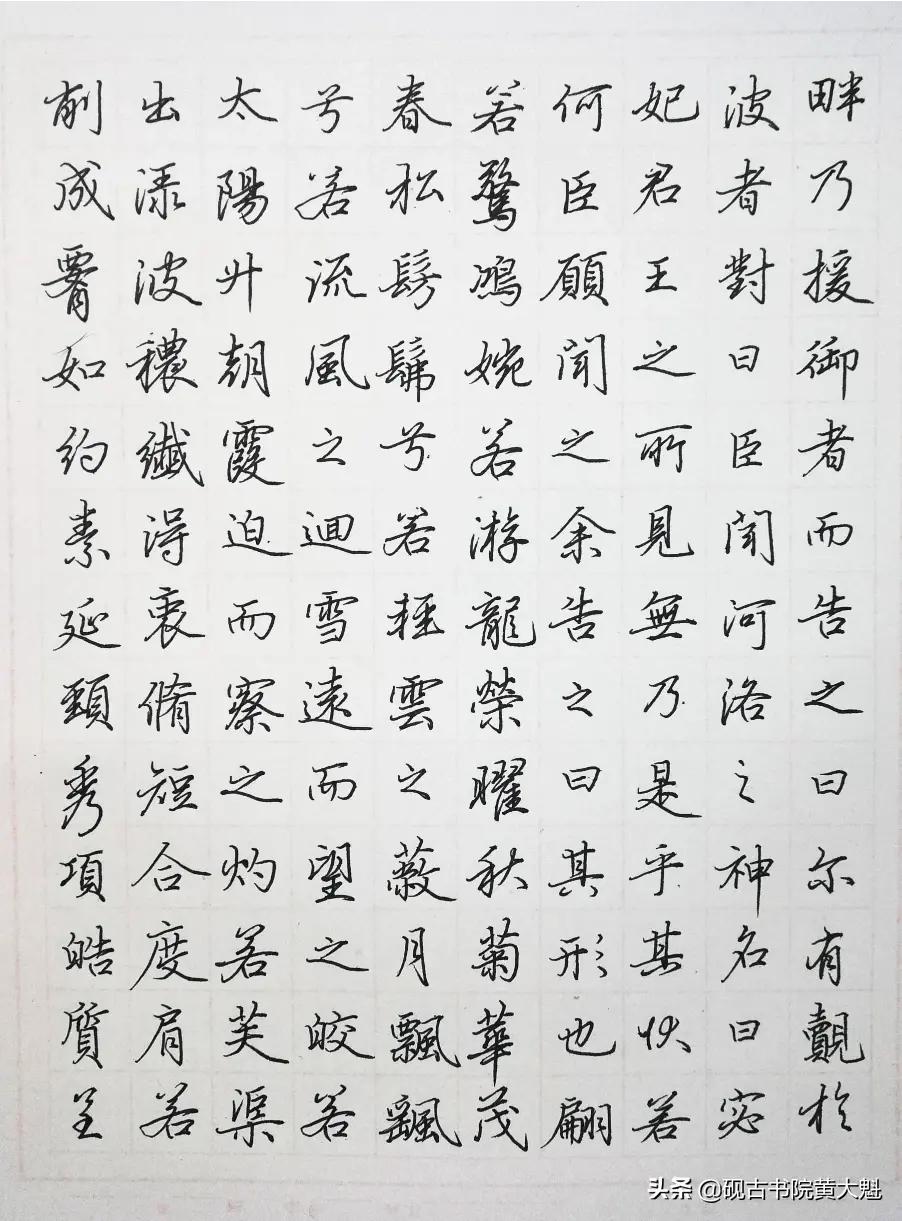 畔乃援御者而告之曰尔有覿於
波者對曰臣聞河洛之神名曰宓
妃君王之所見無乃是乎其状若
何臣願聞之余告之曰其形也翩
若驚鴻婉若游龍榮曜秋菊華茂
春松髣髴兮若輕雲之蔽月飄颻
兮若流風之迴雪遠而望之皎若
太陽升朝霞迫而察之灼若芙渠
出渌波穠纖得衷脩短合度肩若
削成腰如約素延頸秀項皓質呈
头条 @砚古书院黄大魁